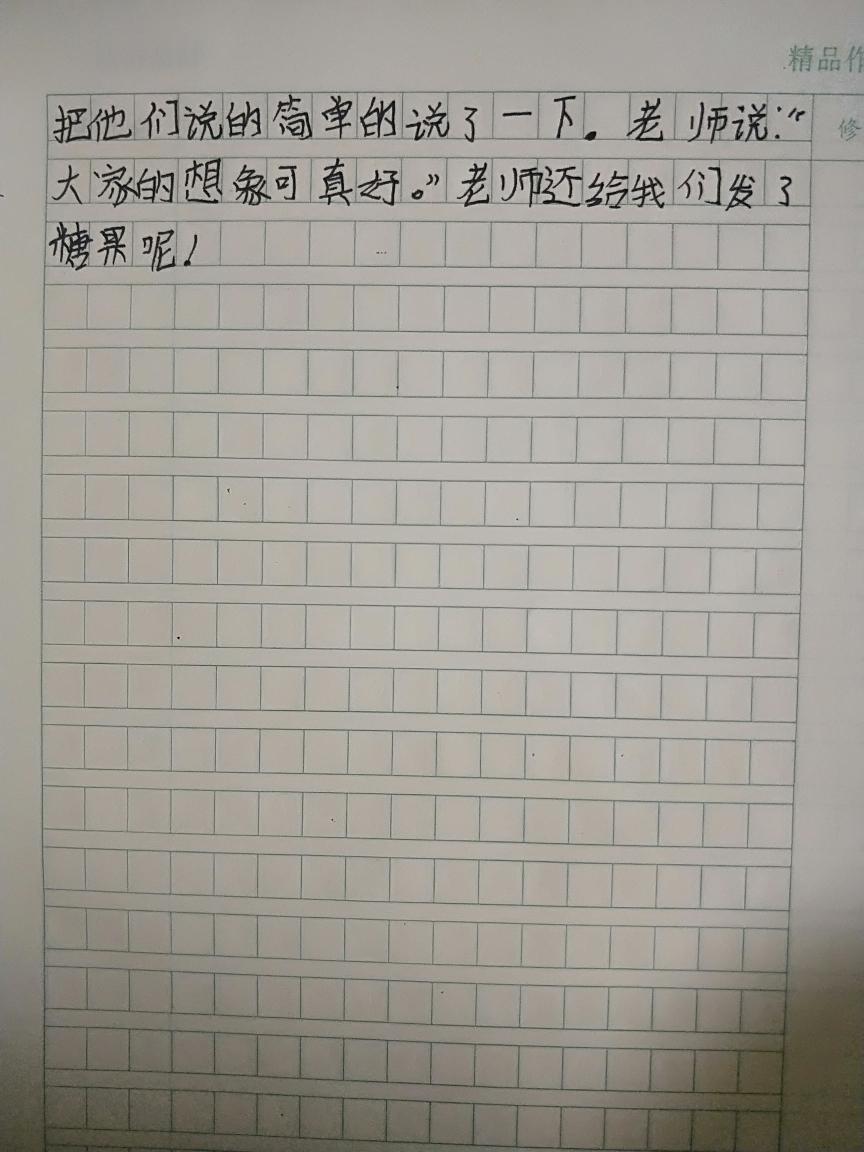 精品作
修
把他们说的简单的说了一下。老师说：“
大家的想象可真好。”老师还给我们发了
糖果呢！